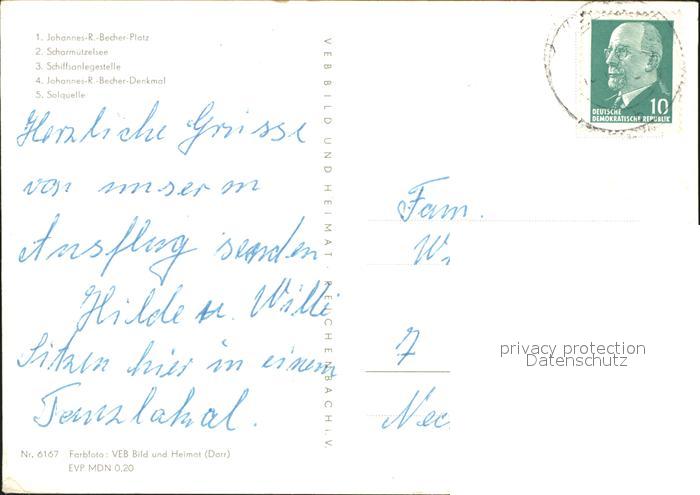 1. Johannes-R.-Becher-Platz
2. Scharmützelsee
3. Schiffsanlegestelle
4. Johannes-R.-Becher-Denkmal
5. Solquelle
Herzliche Grüsse
von unserm
Ausflug senden
Hilde u. Willi
Sitzen hier in einem
Tanzlokal.
Nr. 6167 Farbfoto: VEB Bild und Heimat (Darr)
EVP MDN 0,20
VEB BILD UND HEIMAT · REICHENBACH i. V.
10
DEUTSCHE
DEMOKRATISCHE REPUBLIK
Fam.
W
7
Nec
privacy protection
Datenschutz